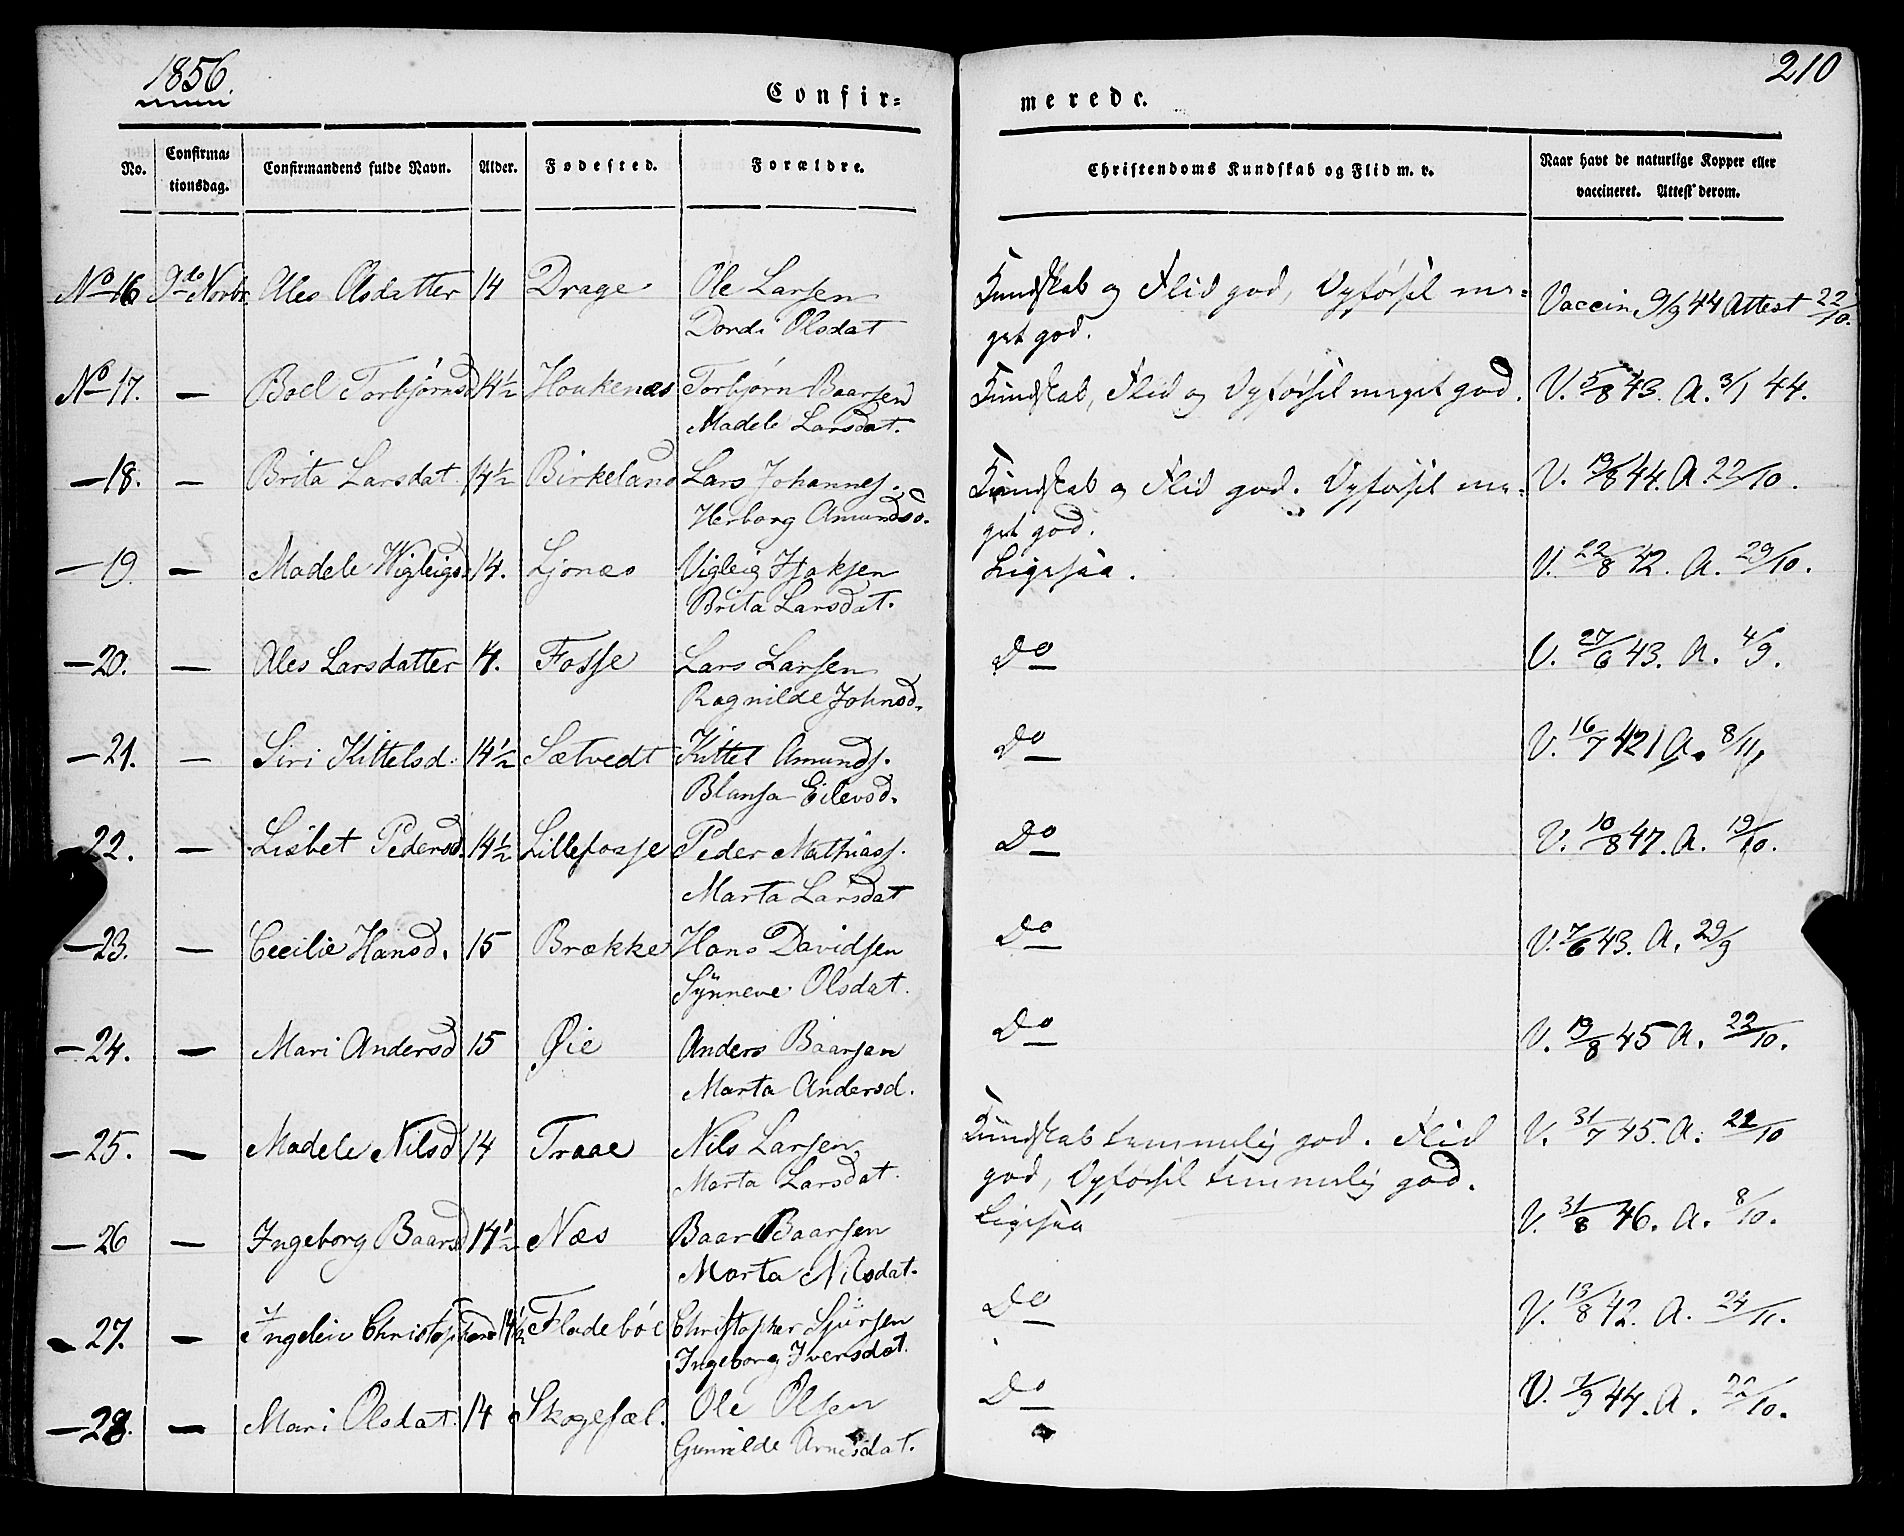 1856.
210
Confir-
merede.
No.
Confirma-
tionsdag.
Confirmandens fulde Navn.
Alder.
Fødested.
Forældre.
Christendoms Kundskab og Flid m. v.
Naar havt de naturlige Kopper eller
vaccineret. Attest derom.
No 16 9de Novbr. Ales Olsdatter 14 Drage Ole Larsen Kundskab og Flid god, Opførsel me- Vaccin 9/9 44 Attest 22/10.
Dordi Olsdat get god.
No 17. — Boel Torbjørnsd 14½ Houkenæs Torbjørn Baarsen Kundskab, Flid og Opførsel meget god. V. 5/8 43. A. 3/1 44.
Madele Larsdat.
—18. — Brita Larsdat. 14½ Birkeland Lars Johannes. Kundskab og Flid god. Opførsel me- V. 19/8 44. A 22/10.
Herborg Amundsd. get god.
—19. — Madele Wigleigs. 14. Ljonæs Vigleig Isaksen Ligesaa. V. 22/8 42. A. 29/10.
Brita Larsdat.
—20. — Ales Larsdatter 14. Fosse Lars Larsen Do V. 27/6 43. A. 4/9.
Ragnilde Johnsd.
—21. — Siri Kittelsd. 14½ Sætvedt Kittel Amunds. Do V. 16/7 42 A. 8/11
Blansa Eilevsd.
—22. — Lisbet Pedersd. 14½ Lillefosse Peder Mathiass. Do V. 10/8 47. A. 19/10.
Marta Larsdat
—23. — Cecilie Hansd. 15 Brække Hans Davidsen Do V. 7/6 43. A. 29/9
Synneve Olsdat.
—24. — Mari Andersd 15 Øie Anders Baarsen Do V. 19/8 45 A. 22/10.
Marta Andersd.
—25. — Madele Nilsd 14 Traae Nils Larsen Kundskab temmelig god. Flid V. 31/7 45. A. 22/10
Marta Larsdat. god, Opførsel temmelig god.
—26 — Ingeborg Baarsd 14½ Næs Baar Baarsen Ligesaa V. 31/8 46. A. 8/10.
Marta Nilsdat.
—27. — Ingeleiv Christophersd 14½ Fladebøe Christopher Sjursen Do V. 13/8 42. A. 24/11.
Ingeborg Iversdat.
—28. — Mari Olsdat. 14 Skogesæl. Ole Olsen Do V. 7/9 44. A. 22/10.
Gunnilde Arnesdat.